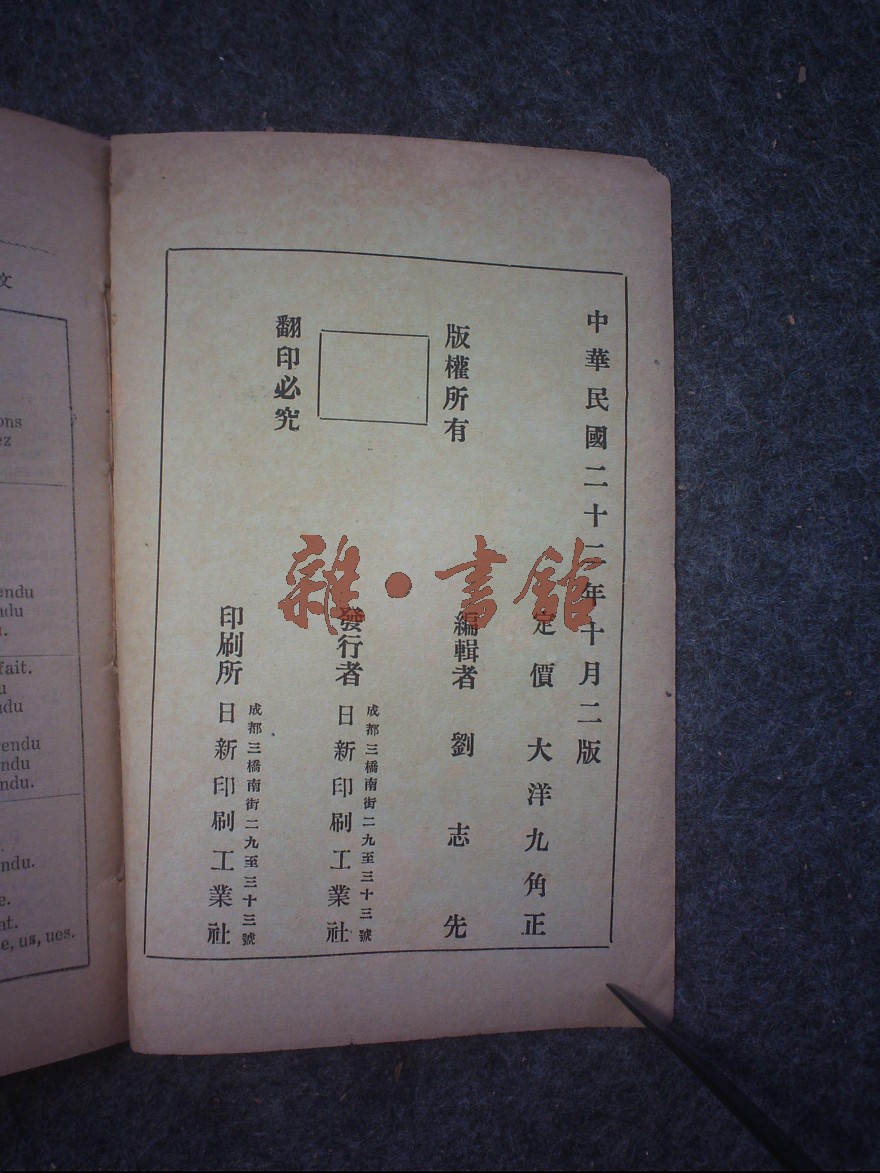 中華民國二十二年十月二版
定價 大洋九角正
版權所有
編輯者 劉志先
發行者 成都三橋南街二九至三十三號
日新印刷工業社
翻印必究
印刷所 成都三橋南街二九至三十三號
日新印刷工業社
雜·書館
文
ons
ez
endu
ndu
fait.
u
ndu
endu
ndu
ndu.
ndu.
e.
nt.
e, us, ues.